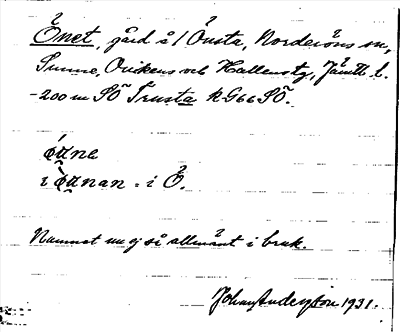 Önet, gård å 1 Önsta, Norderöns sn,
Sunne, Ovikens och Hallens tg, Jämtl. l.
-200 m SO Trusta RG66 SO.
i Ö.
Namnet nu ej så allmänt i bruk.
Johan Anderzon 1931.